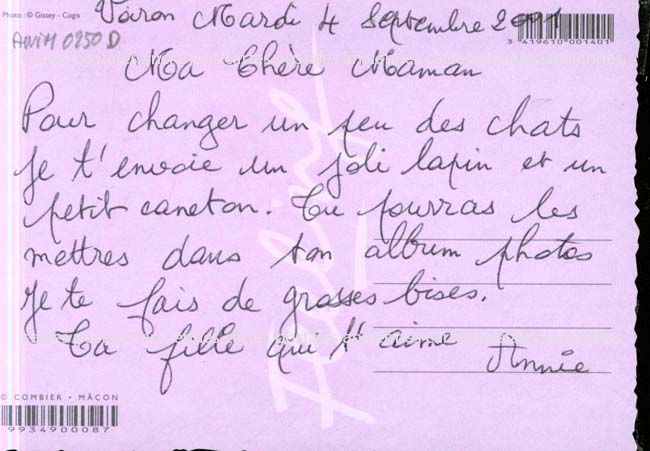 Photo : © Gissey - Cogis
Voiron Mardi 4 Septembre 2001
ANIM 0250 D
3 419610 001401
Ma Chère Maman
Pour changer un peu des chats
Je t'envoie un joli lapin et un
petit caneton. Tu pourras les
mettres dans ton album photos
Je te fais de grosses bises.
Ta fille qui t'aime
Annie
© COMBIER • MÂCON
9934900087